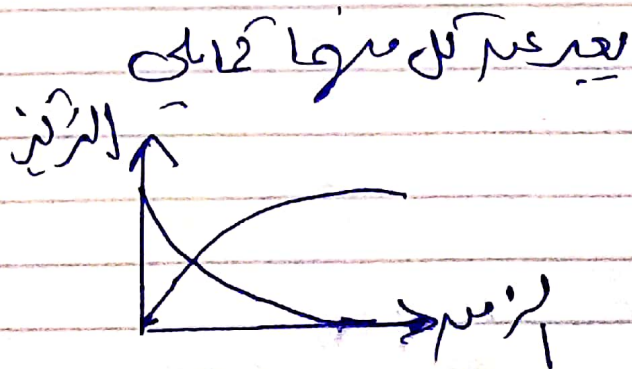 يعبر عن كل منهما كما يلي
التركيز
الزمن